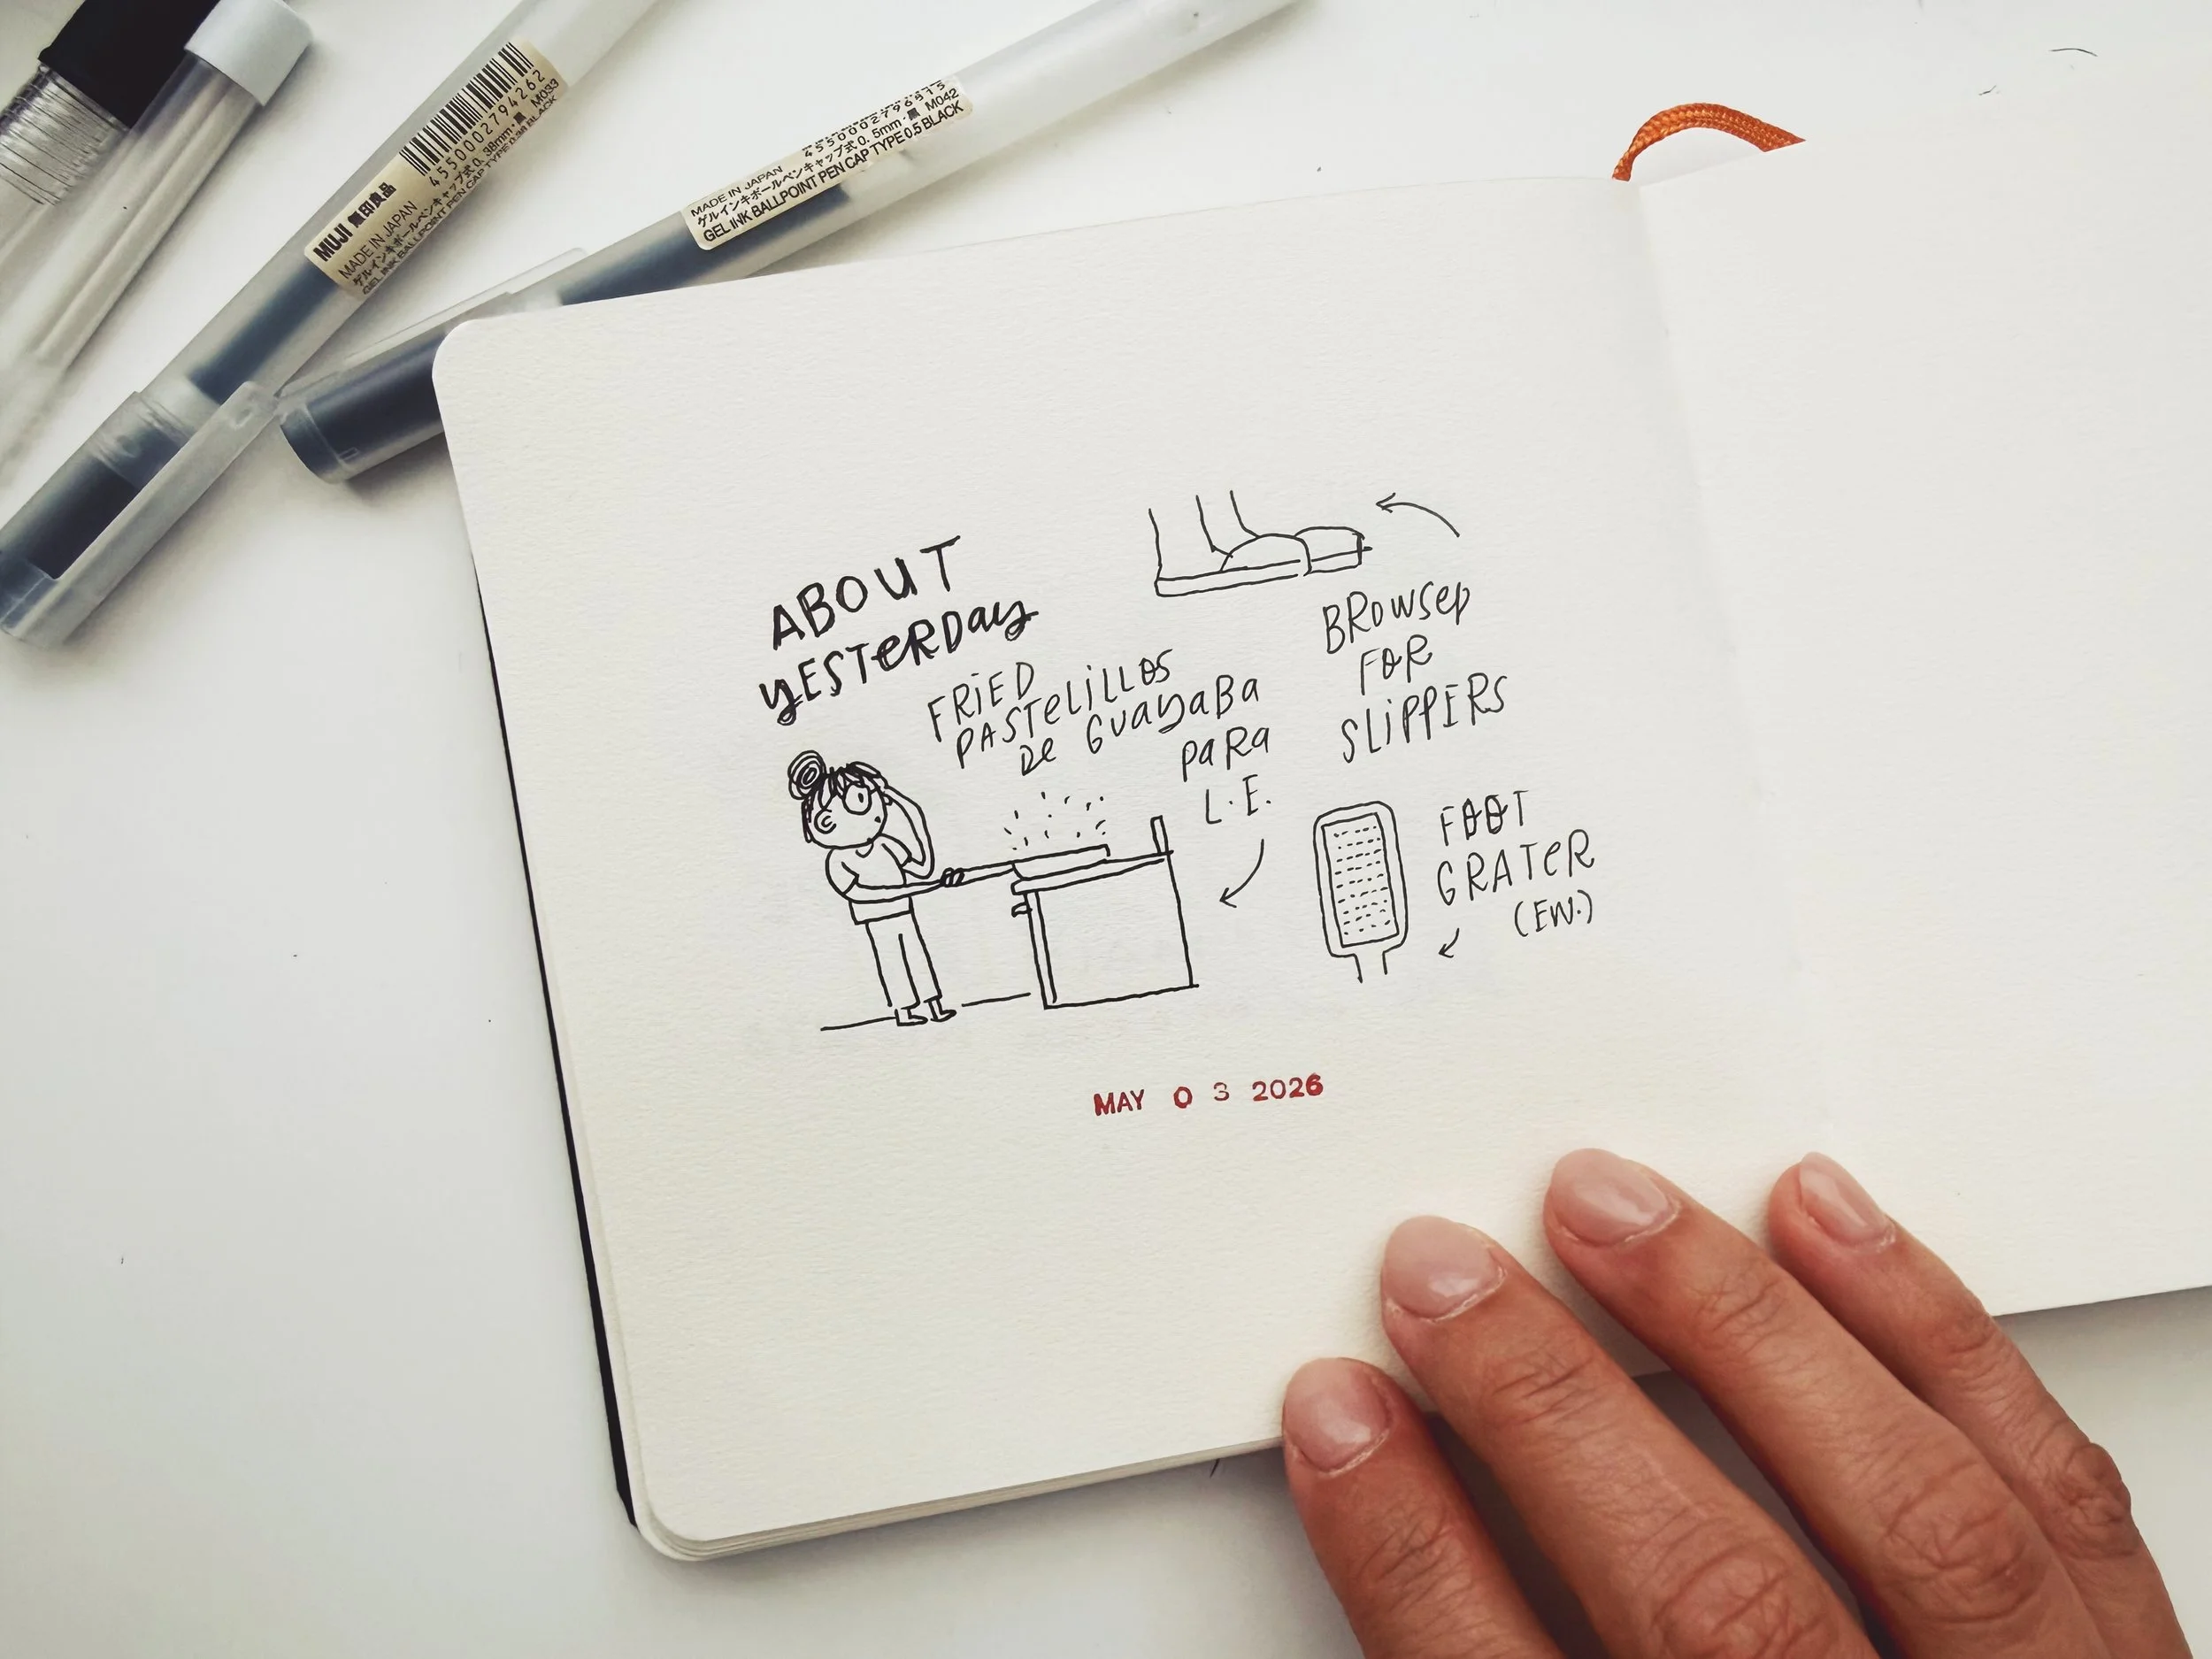 MUJI 無印良品
4550002794262
MADE IN JAPAN
ゲルインキボールペンキャップ式0.38mm・黒 M033
GEL INK BALLPOINT PEN CAP TYPE 0.38 BLACK
4550002796915
MADE IN JAPAN
ゲルインキボールペンキャップ式0.5mm・黒 M042
GEL INK BALLPOINT PEN CAP TYPE 0.5 BLACK
ABOUT
YESTERDAY
FRIED
PASTELILLOS
DE GUAYABA
PARA
L.E.
BROWSED
FOR
SLIPPERS
FOOT
GRATER
(EW.)
MAY 03 2026